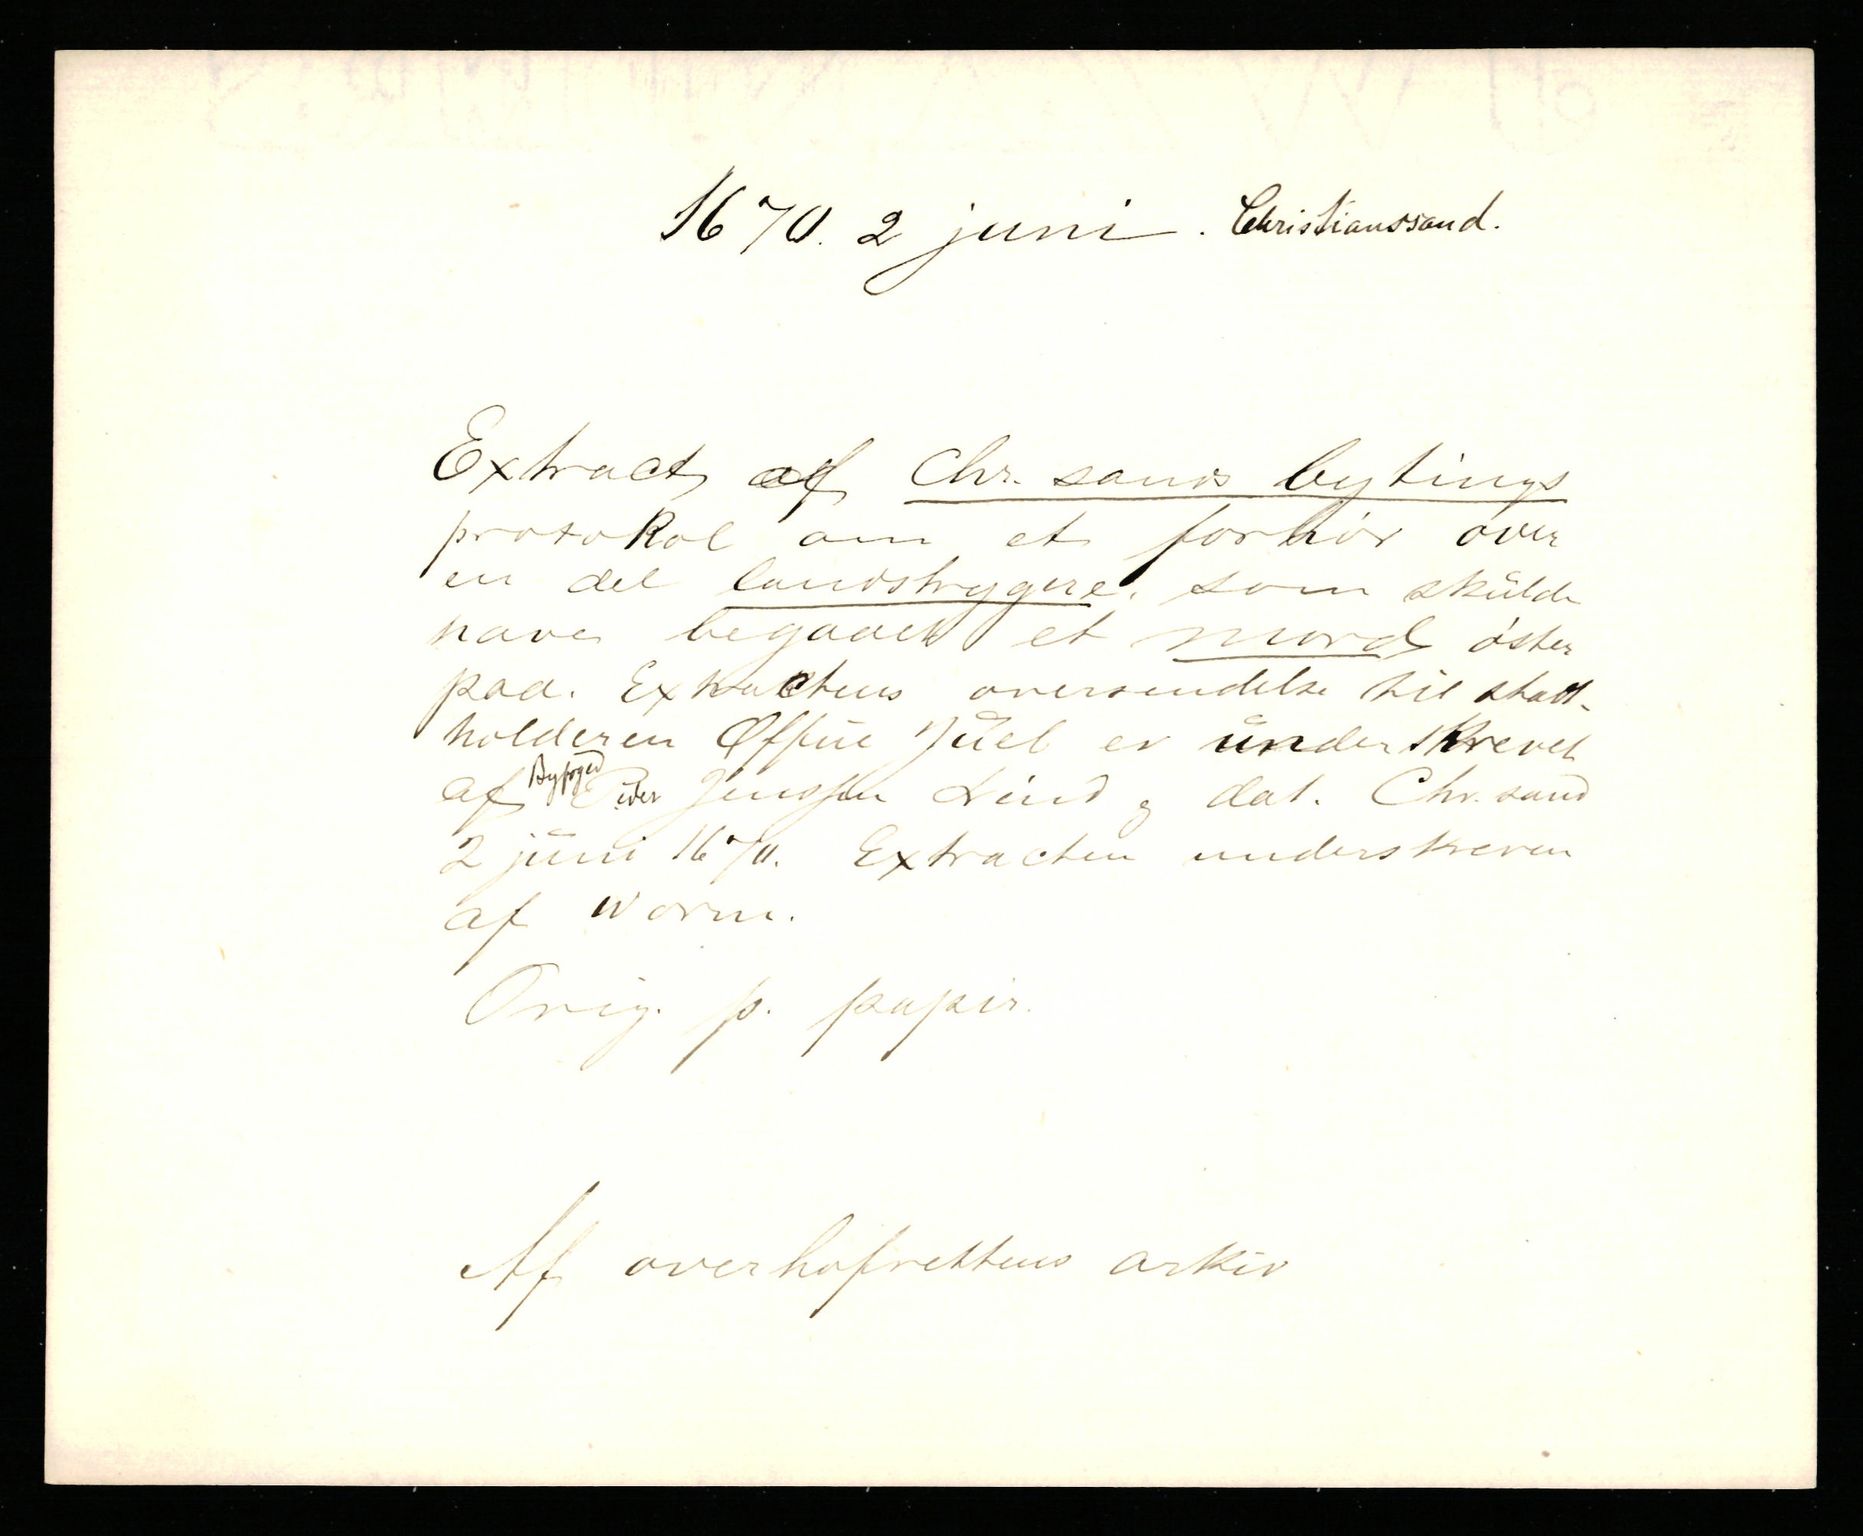 1670. 2 juni. Christianssand.
Extract af Chr.sands bytings
protokol om et forhör over
en del landstrygere, som skulde
have begaaet et mord öster
paa. Extractens oversendelse til statt-
holderen Ove Juel er underskrevet
af Byfoged Peder Jenssen Lind og dat. Chr.sand
2 juni 1670. Extracten underskreven
af Worm.
Orig. p. papir.
Af overhofrettens arkiv